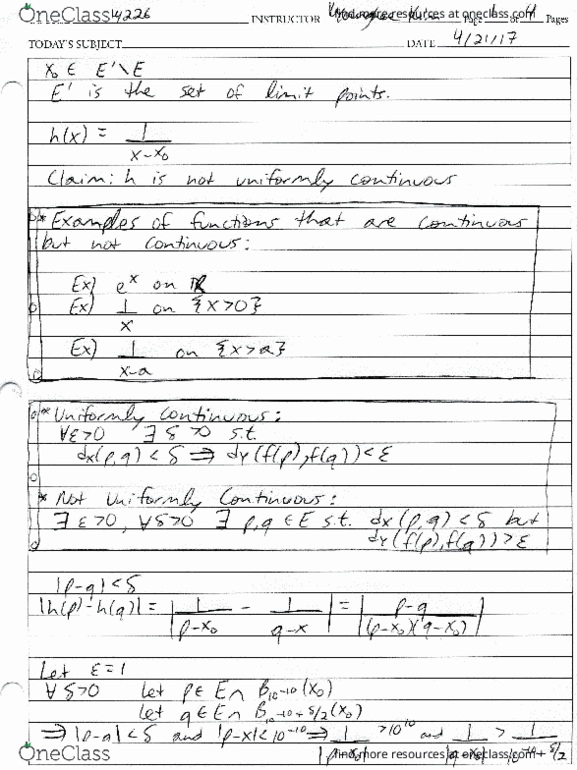 OneClass 4226
INSTRUCTOR find more resources at oneclass.com Page 1 of 4 Pages
TODAY'S SUBJECT DATE 4/21/17
x₀ ∈ E'\E
E' is the set of limit points.
h(x) = 1/(x-x₀)
Claim: h is not uniformly continuous
* Examples of functions that are continuous
but not continuous:
Ex) eˣ on ℝ
Ex) 1/x on {x>0}
Ex) 1/(x-a) on {x>a}
* Uniformly Continuous:
∀ε>0 ∃ δ>0 s.t.
dx(p,q) < δ ⇒ dy(f(p),f(q)) < ε
* Not Uniformly Continuous:
∃ ε>0, ∀δ>0 ∃ p,q ∈ E s.t. dx(p,q) < δ but
dy(f(p),f(q)) > ε
|p-q| < δ
|h(p)-h(q)| = |1/(p-x₀) - 1/(q-x)| = |(p-q)/((p-x₀)(q-x₀))|
Let ε=1
∀ δ>0 Let p ∈ E ∩ B₁₀-¹⁰(x₀)
Let q ∈ E ∩ B₁₀-¹⁰+δ/2(x₀)
⇒ |p-q| < δ and |p-x| < 10⁻¹⁰ ⇒ 1/|p-x₀| > 10¹⁰ and 1/|q-x₀| > 1/(10⁻¹⁰+δ/2)
OneClass find more resources at oneclass.com